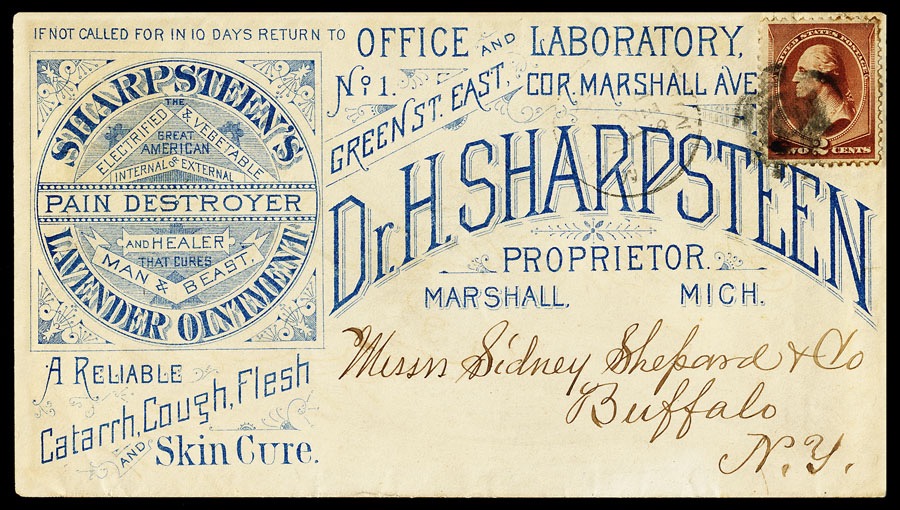 IF NOT CALLED FOR IN 10 DAYS RETURN TO
OFFICE AND LABORATORY,
No 1. GREEN ST. EAST, COR. MARSHALL AVE
Dr. H. SHARPSTEEN
PROPRIETOR.
MARSHALL, MICH.
SHARPSTEEN'S
THE
ELECTRIFIED & VEGETABLE
GREAT
AMERICAN
INTERNAL & EXTERNAL
PAIN DESTROYER
AND HEALER
THAT CURES
MAN & BEAST.
LAVENDER OINTMENT
A RELIABLE
Catarrh, Cough, Flesh
AND Skin Cure.
UNITED STATES POSTAGE
TWO 2 CENTS
Messrs Sidney Shepard & Co
Buffalo
N.Y.